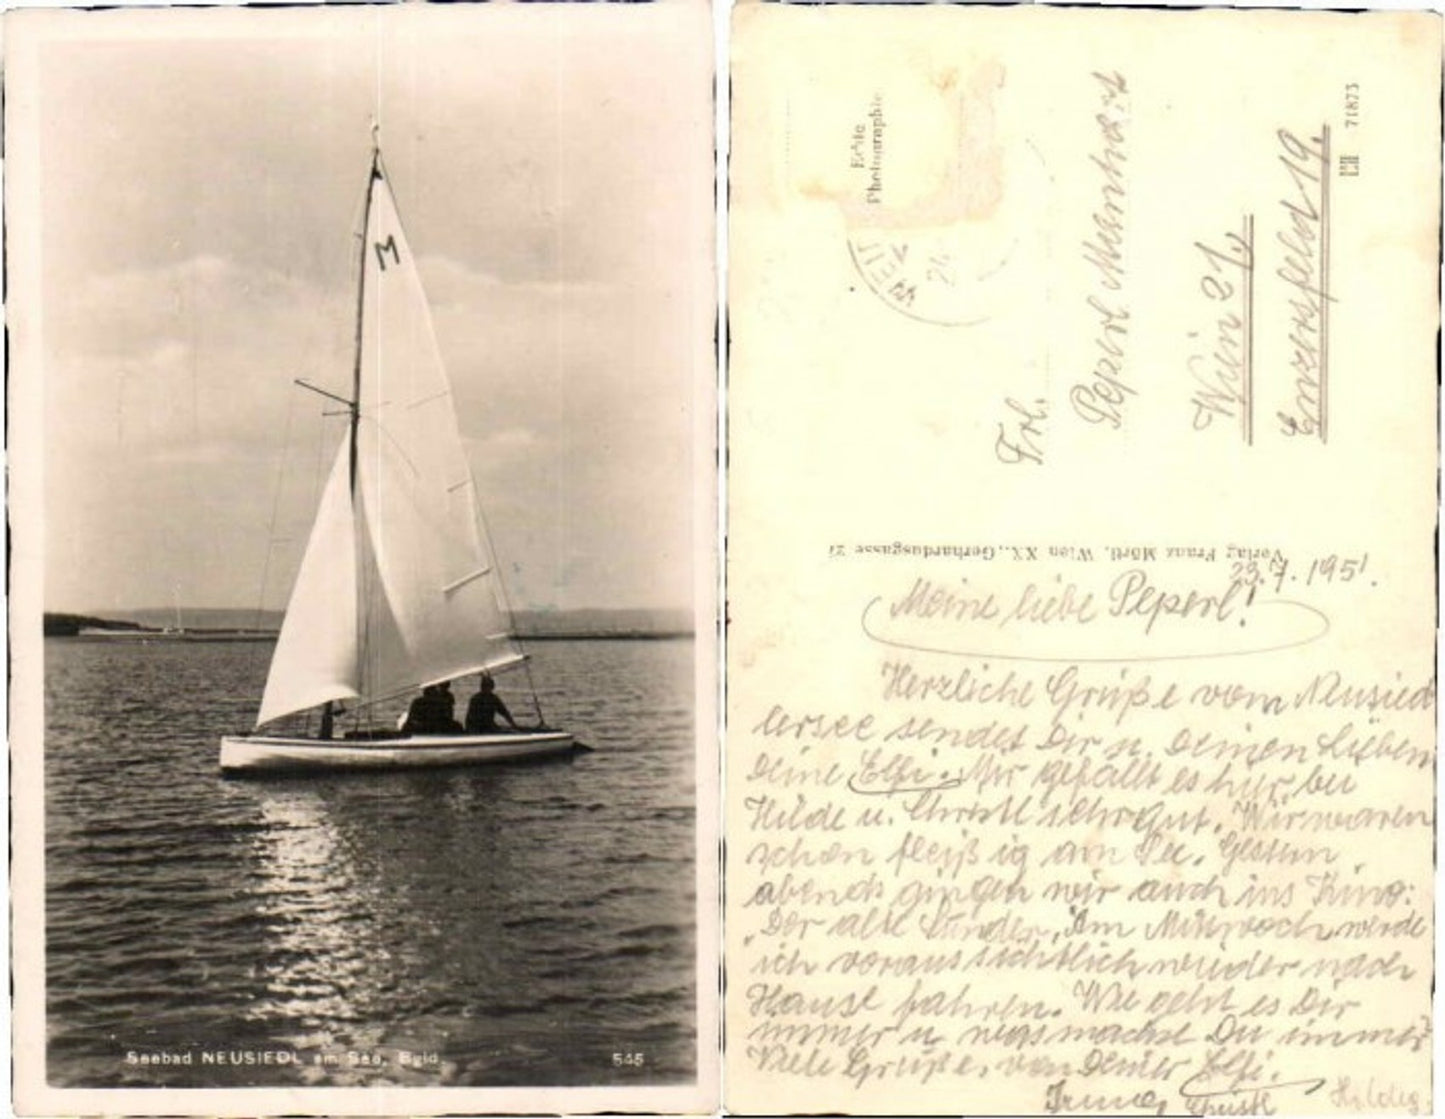 M
Seebad NEUSIEDL am See, Bgld.
545
Echte
Photographie
Frl.
Peperl
Wien 21/
Enzersfeld 19.
71873
Verlag Franz Mörtl, Wien XX., Gerhardusgasse 27
23.7.1951.
Meine liebe Peperl!
Herzliche Grüße vom Neusied
lersee sendet Dir u. Deinen Lieben
Deine Elfi. Mir gefällt es hier bei
Hilde u. Christl sehr gut. Wir waren
schon fleißig am See. Gestern
abends gingen wir auch ins Kino:
"Der alte Sünder". Am Mittwoch werde
ich voraussichtlich wieder nach
Hause fahren. Wie geht es Dir
immer u. was machst Du immer
Viele Grüße, von Deiner Elfi.
Christl